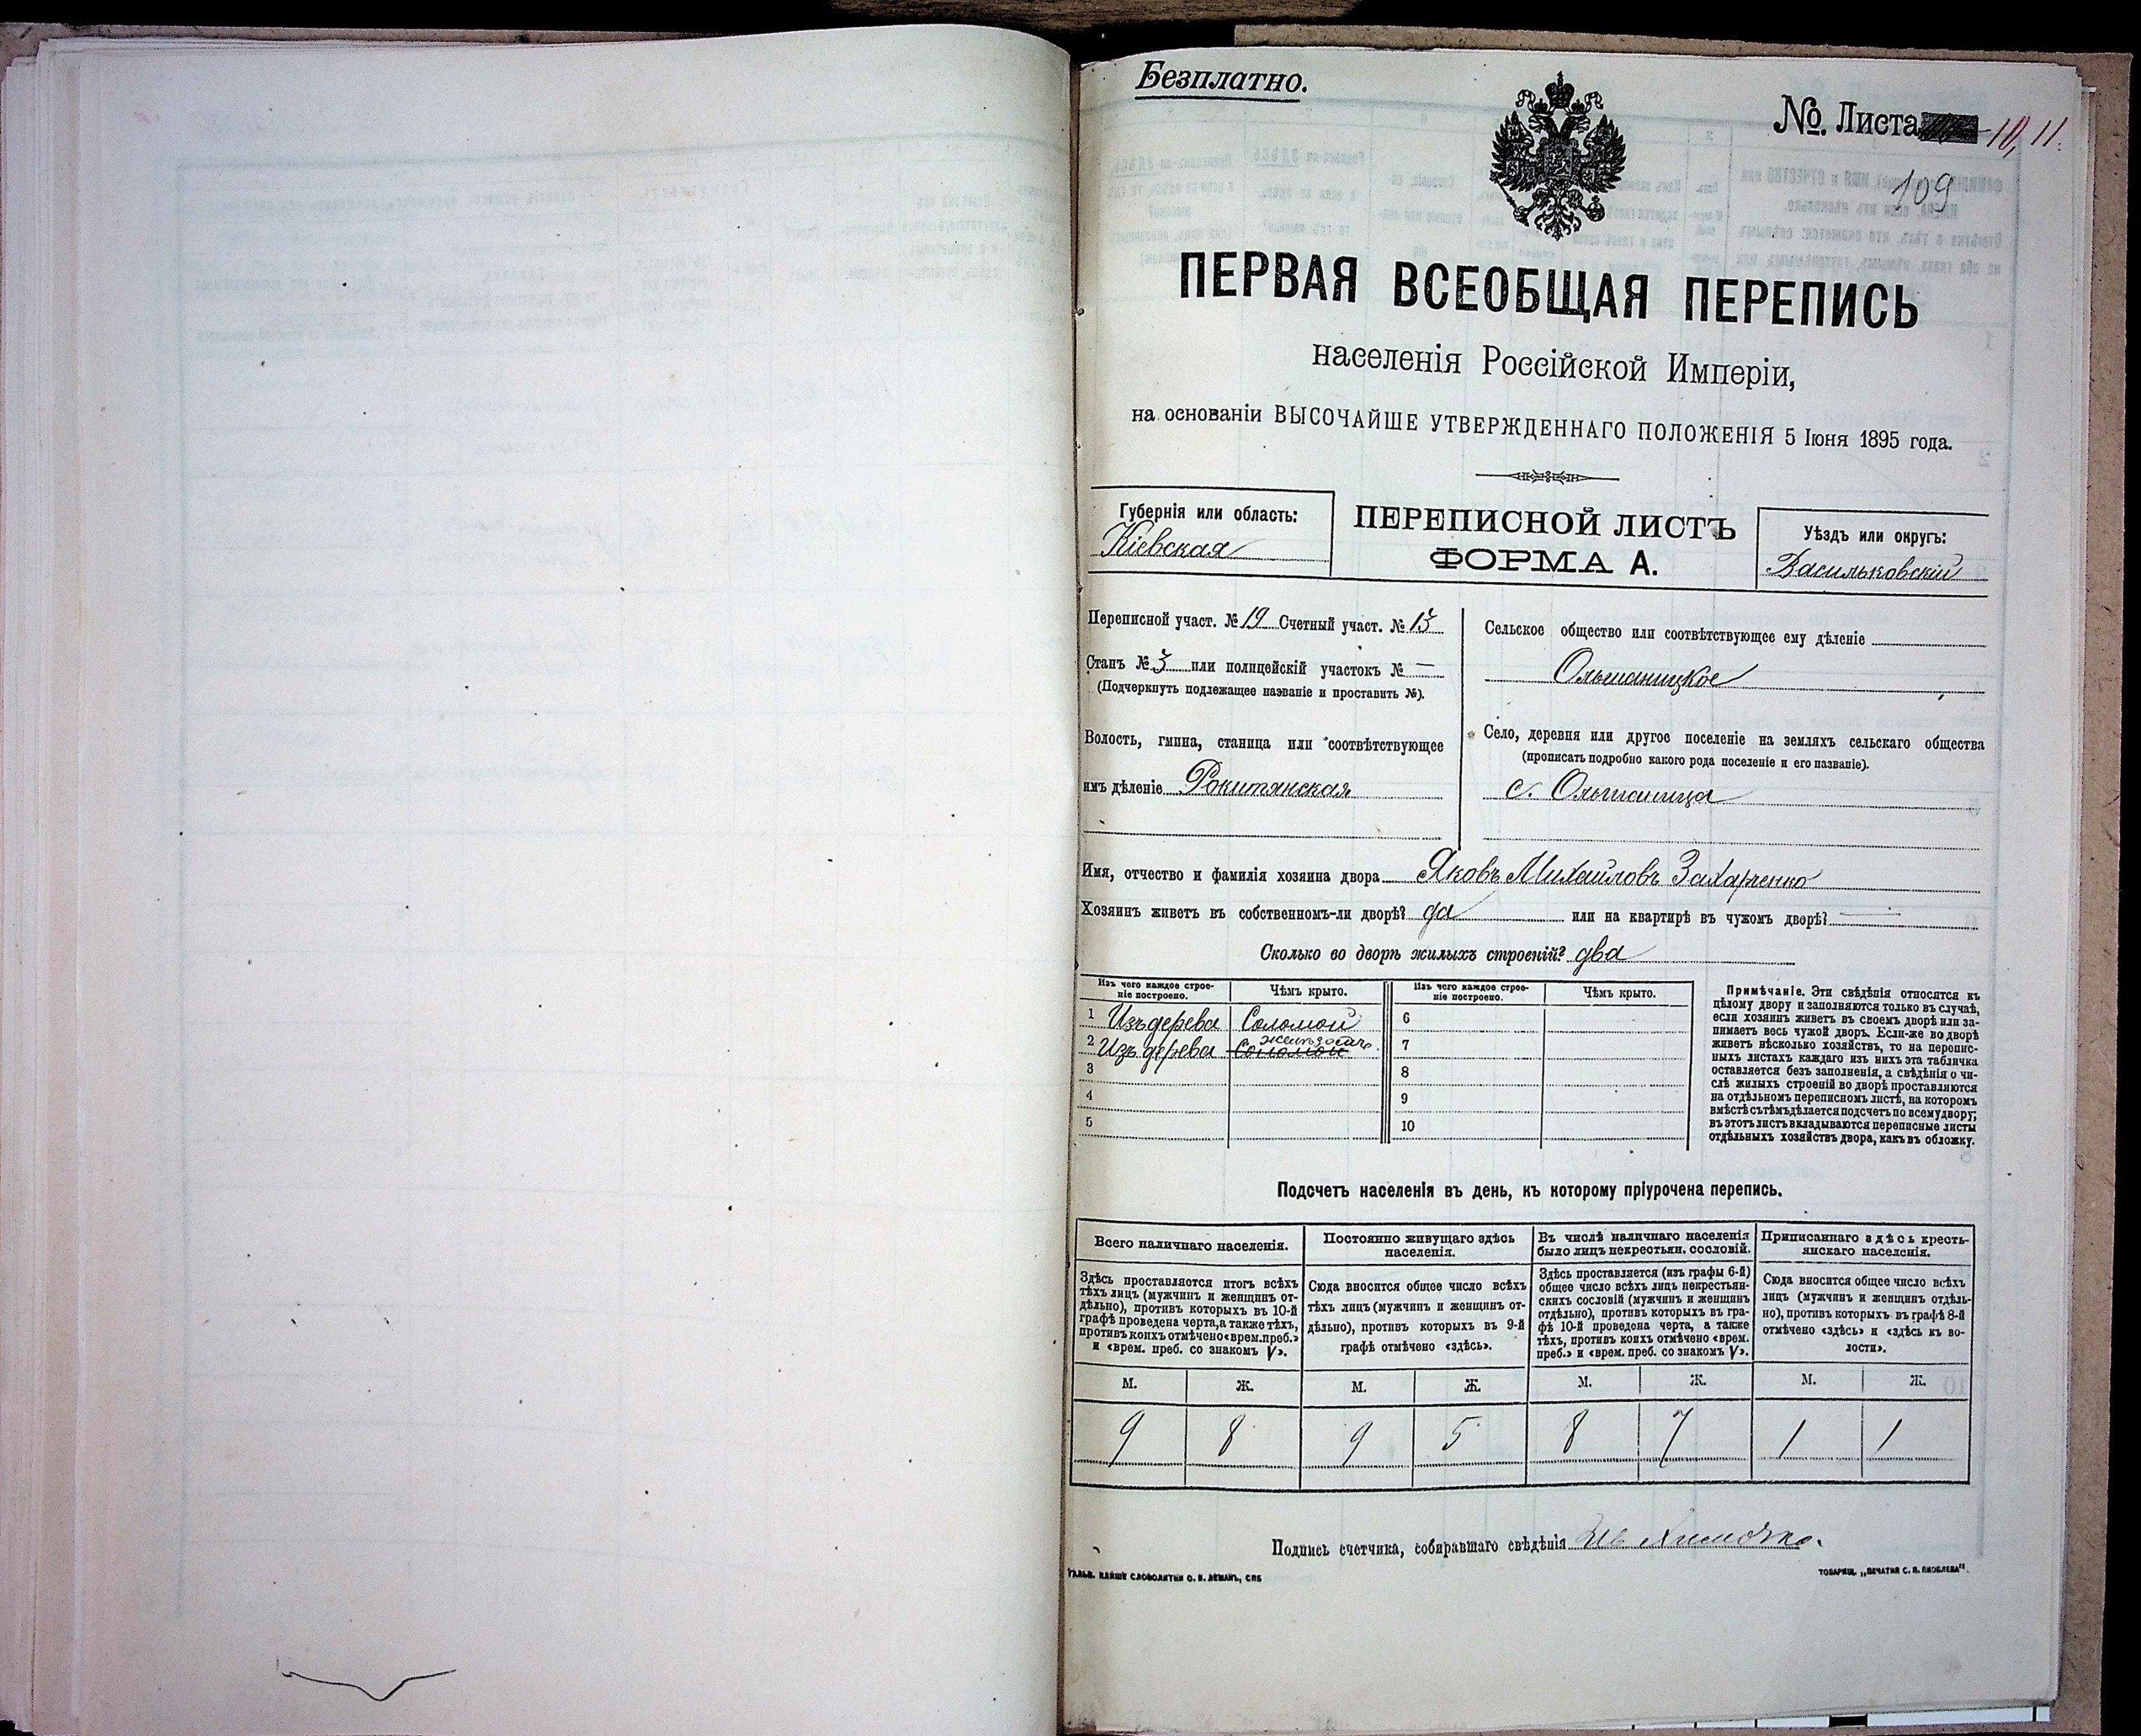 Безплатно.
№. Листа 10, 11.
109
ПЕРВАЯ ВСЕОБЩАЯ ПЕРЕПИСЬ
населенія Россійской Имперіи,
на основаніи ВЫСОЧАЙШЕ УТВЕРЖДЕННАГО ПОЛОЖЕНІЯ 5 Іюня 1895 года.
Губернія или область:
Кіевская
ПЕРЕПИСНОЙ ЛИСТЪ
ФОРМА А.
Уѣздъ или округъ:
Васильковскій
Переписной участ. № 19 Счетный участ. № 13
Станъ № 3 или полицейскій участокъ № —
(Подчеркнуть подлежащее названіе и проставить №).
Волость, гмина, станица или соотвѣтствующее
имъ дѣленіе Рокитянская
Сельское общество или соотвѣтствующее ему дѣленіе
Ольшаницкое
Село, деревня или другое поселеніе на земляхъ сельскаго общества
(прописать подробно какого рода поселеніе и его названіе).
с. Ольшаница
Имя, отчество и фамилія хозяина двора Яковъ Михайловъ Захарченко
Хозяинъ живетъ въ собственномъ-ли дворѣ? да или на квартирѣ въ чужомъ дворѣ? —
Сколько во дворѣ жилыхъ строеній? два
Изъ чего каждое строе-
ніе построено.
Чѣмъ крыто.
1 Изъ дерева Соломой
2 Изъ дерева Соломой
3
4
5
Изъ чего каждое строе-
ніе построено.
Чѣмъ крыто.
6
7
8
9
10
Примѣчаніе. Эти свѣдѣнія относятся къ
цѣлому двору и заполняются только въ случаѣ,
если хозяинъ живетъ въ своемъ дворѣ или за-
нимаетъ весь чужой дворъ. Если-же во дворѣ
живетъ нѣсколько хозяйствъ, то на перепис-
ныхъ листахъ каждаго изъ нихъ эта табличка
оставляется безъ заполненія, а свѣдѣнія о чи-
слѣ жилыхъ строеній во дворѣ проставляются
на отдѣльномъ переписномъ листѣ, на которомъ
вмѣстѣ съ тѣмъ дѣлается подсчетъ по всему двору;
въ этотъ листъ вкладываются переписные листы
отдѣльныхъ хозяйствъ двора, какъ въ обложку.
Подсчетъ населенія въ день, къ которому пріурочена перепись.
Всего наличнаго населенія.
Здѣсь проставляется итогъ всѣхъ
тѣхъ лицъ (мужчинъ и женщинъ от-
дѣльно), противъ которыхъ въ 10-й
графѣ проведена черта, а также тѣхъ,
противъ коихъ отмѣчено «врем. преб.»
и «врем. преб. со знакомъ V».
Постоянно живущаго здѣсь
населенія.
Сюда вносится общее число всѣхъ
тѣхъ лицъ (мужчинъ и женщинъ от-
дѣльно), противъ которыхъ въ 9-й
графѣ отмѣчено «здѣсь».
Въ числѣ наличнаго населенія
было лицъ некрестьян. сословій.
Здѣсь проставляется (изъ графы 6-й)
общее число всѣхъ лицъ некрестьян-
скихъ сословій (мужчинъ и женщинъ
отдѣльно), противъ которыхъ въ гра-
фѣ 10-й проведена черта, а также
тѣхъ, противъ коихъ отмѣчено «врем.
преб.» и «врем. преб. со знакомъ V».
Приписаннаго здѣсь кресть-
янскаго населенія.
Сюда вносится общее число всѣхъ
лицъ (мужчинъ и женщинъ отдѣль-
но), противъ которыхъ въ графѣ 8-й
отмѣчено «здѣсь» и «здѣсь къ во-
лости».
М. Ж. М. Ж. М. Ж. М. Ж.
9 8 9 5 8 7 1 1
Подпись счетчика, собиравшаго свѣдѣнія
ГАЛЬВ. КЛИШЕ СЛОВОЛИТНИ О. И. ЛЕМАНЪ, СПБ
ТОВАРИЩ. „ПЕЧАТНЯ С. П. ЯКОВЛЕВА"